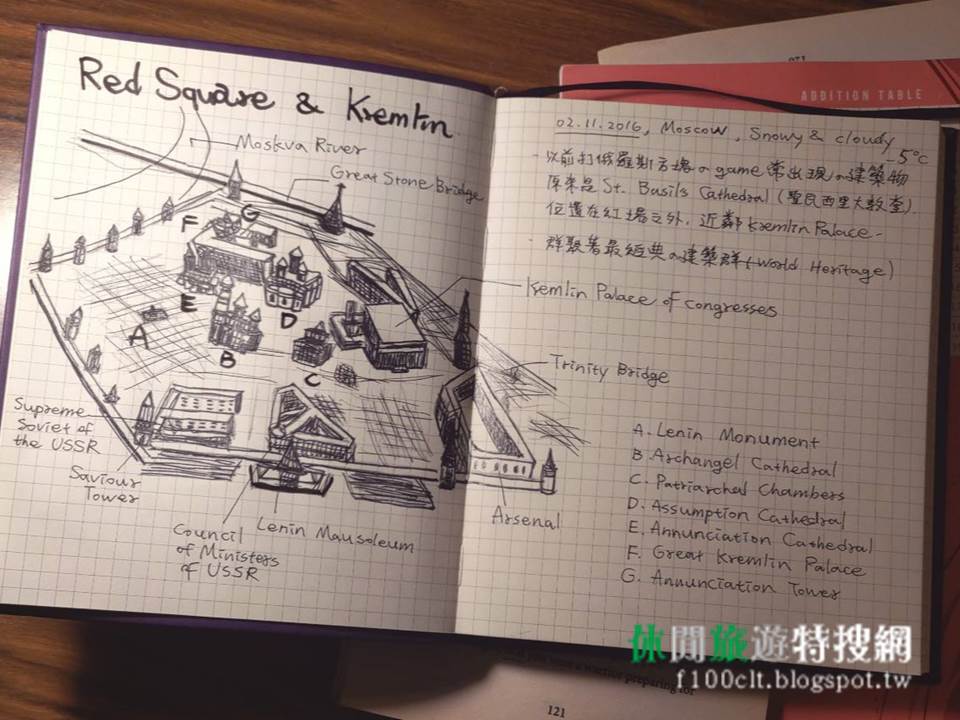 Red Square & Kremlin
Moskva River
Great Stone Bridge
F
G
E
D
A
B
C
Supreme
Soviet of
the USSR
Saviour
Tower
Council
of Ministers
of USSR
Lenin Mausoleum
Arsenal
Kremlin Palace of congresses
Trinity Bridge
ADDITION TABLE
02.11.2016, Moscow, Snowy & cloudy
-5°c
·以前打俄羅斯方塊の game 常出現の建築物
原來是 St. Basils Cathedral (聖民西里大教堂)
位置在紅場之外, 近鄰 Kremlin Palace.
·群聚著最經典の建築群 (World Heritage)
A. Lenin Monument
B. Archangel Cathedral
C. Patriarchal Chambers
D. Assumption Cathedral
E. Annunciation Cathedral
F. Great Kremlin Palace
G. Annunciation Tower
休閒旅遊特搜網
f100clt.blogspot.tw
preparing for
121